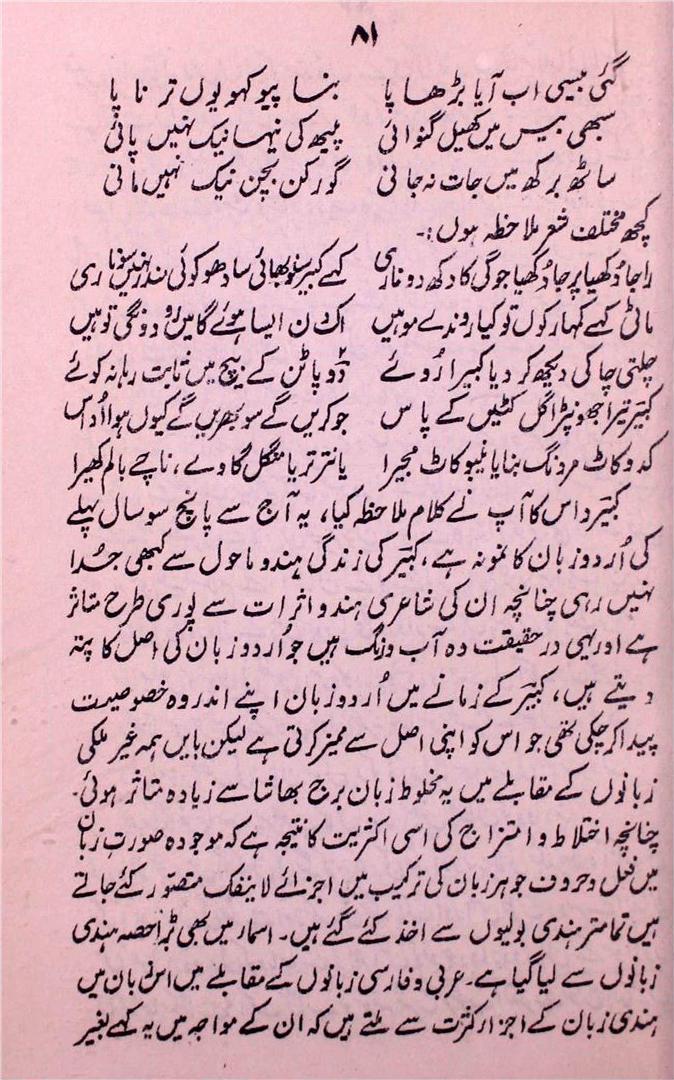 ۸۱
گئی بیسی اب آیا بڑھا پا بنا پیو کہو یوں تر نا پا
سبھی بیس میں کھیل گنوائی پیٹھ کی نیہا نیک نہیں پائی
ساٹھ برکھ میں جات نہ جانی گورکن بچن نیک نہیں مانی
کچھ مختلف شعر ملاحظہ ہوں :۔
راجا دُکھیا پرجا دُکھیا جوگی کا دکھ دوناری کہے کبیر سنو بھائی سادھو کوئی مندر نہیں سوناری
ماٹی کہے کمہار کوں تو کیا روندے موہیں اک دن ایسا ہوئے گا میں روندونگی توہیں
چلتی چاکی دیکھ کر دیا کبیرا رُوئے دُوپاٹن کے بیچ میں ثابت رہا نہ کوئے
کبیر تیرا جھونپڑا گل کٹیں کے پاس جو کریں گے سو بھریں گے کیوں ہوا اُداس
کدو کاٹ مردنگ بنایا نیبو کاٹ مجیرا پانتر تریا منگل گاوے، ناچے بالم کھیرا
کبیر داس کا آپ نے کلام ملاحظہ کیا، یہ آج سے پانچ سو سال پہلے
کی اُردو زبان کا نمونہ ہے، کبیر کی زندگی ہندو ماحول سے کبھی جُدا
نہیں رہی چنانچہ ان کی شاعری ہندو اثرات سے پوری طرح متاثر
ہے اور یہی درحقیقت وہ آب و رنگ ہیں جو اُردو زبان کی اصل کا پتہ
دیتے ہیں، کبیر کے زمانے میں اُردو زبان اپنے اندر وہ خصوصیت
پیدا کر چکی تھی جو اس کو اپنی اصل سے ممیز کرتی ہے لیکن بایں ہمہ غیر ملکی
زبانوں کے مقابلے میں یہ مخلوط زبان برج بھاشا سے زیادہ متاثر ہوئی۔
چنانچہ اختلاط و امتزاج کی اسی اکثریت کا نتیجہ ہے کہ موجودہ صورت زبان
میں فعل و حروف جو ہر زبان کی ترکیب میں اجزائے لاینفک متصور کئے جاتے
ہیں تمامتر ہندی بولیوں سے اخذ کئے گئے ہیں۔ اسمار میں بھی بڑا حصہ ہندی
زبانوں سے لیا گیا ہے۔ عربی و فارسی زبانوں کے مقابلے میں اس زبان میں
ہندی زبان کے اجزار کثرت سے ملتے ہیں کہ ان کے مواجہ میں یہ کہے بغیر